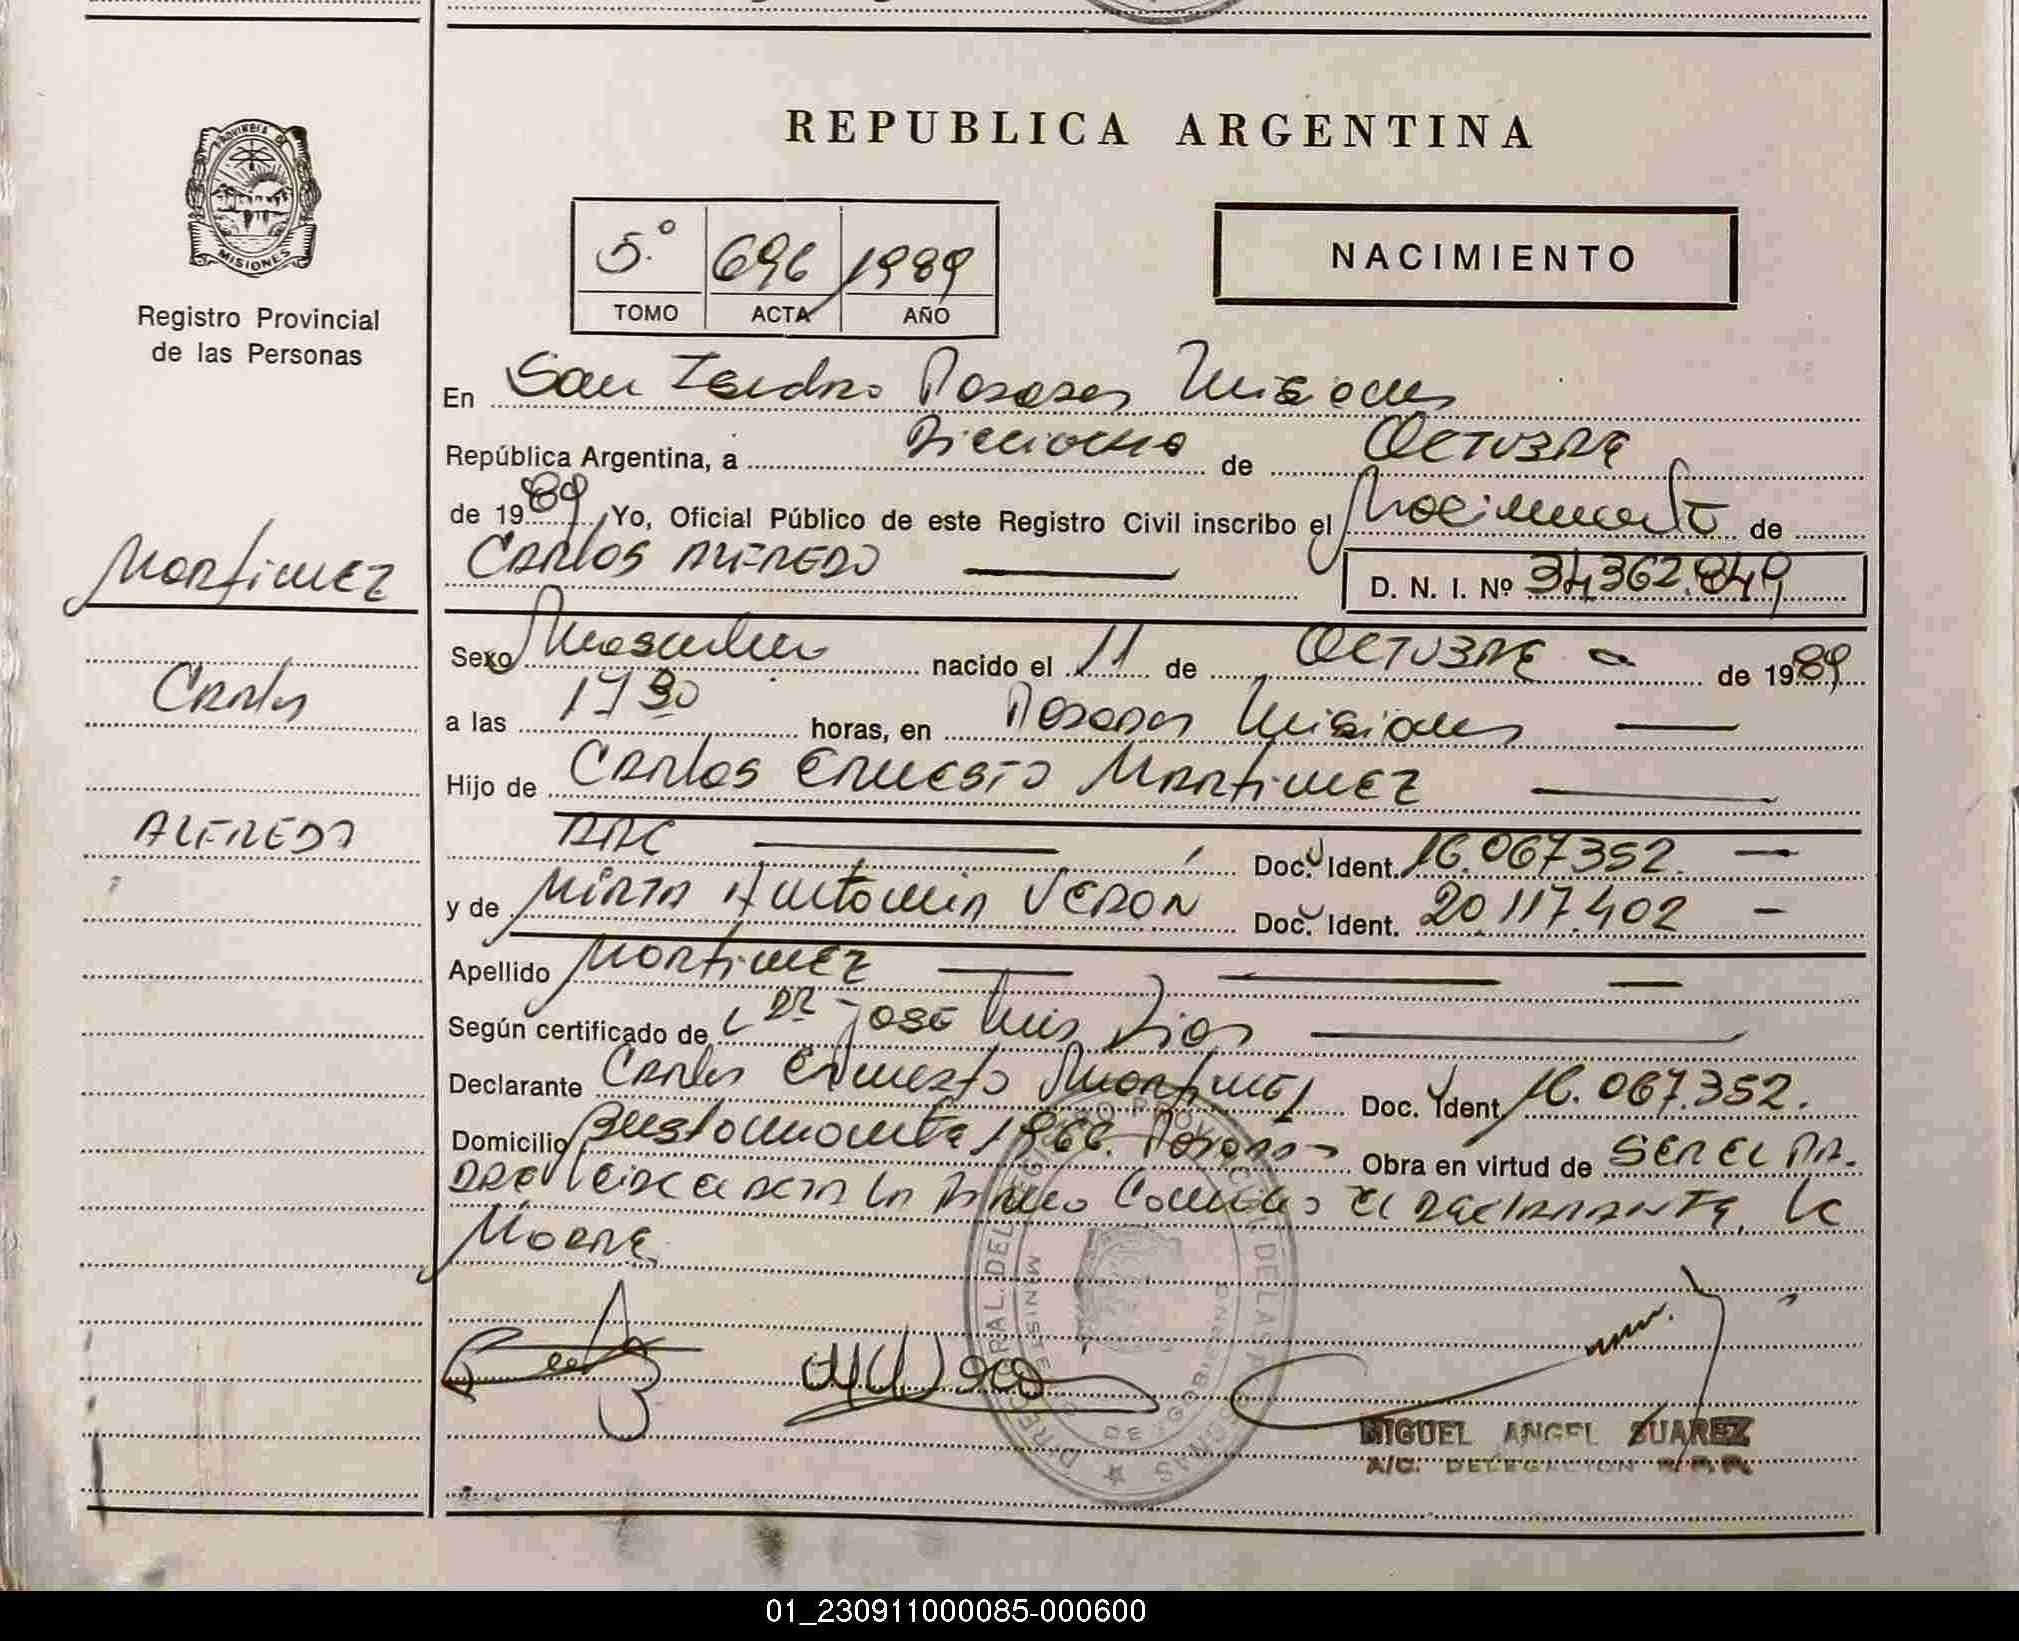 REPUBLICA ARGENTINA
PROVINCIA DE
MISIONES
Registro Provincial
de las Personas
5.º 696 1989
TOMO ACTA AÑO
NACIMIENTO
En San Isidro Posadas Misiones
República Argentina, a Dieciocho de OCTUBRE
de 1989 Yo, Oficial Público de este Registro Civil inscribo el Nacimiento de
Martinez
CARLOS ALFREDO
D. N. I. Nº 34.362.849
Sexo Masculino nacido el 11 de OCTUBRE de 1989
Carlos
a las 17 30 horas, en Posadas Misiones
Hijo de Carlos Ernesto Martinez
ALFREDO
Doc. Ident. 16.067.352.
y de Mirta Antonia VERON Doc. Ident. 20.117.402
Apellido Martinez
Según certificado de DR José Luis Rios
Declarante Carlos Ernesto Martinez Doc. Ident. 16.067.352.
Domicilio Bustamante 1966. Posadas Obra en virtud de SER EL PA.
DRE la Comuno El DECLARANTE. la
MADRE
MIGUEL ANGEL SUAREZ
A/C. DELEGACION R.P.P.
01_230911000085-000600